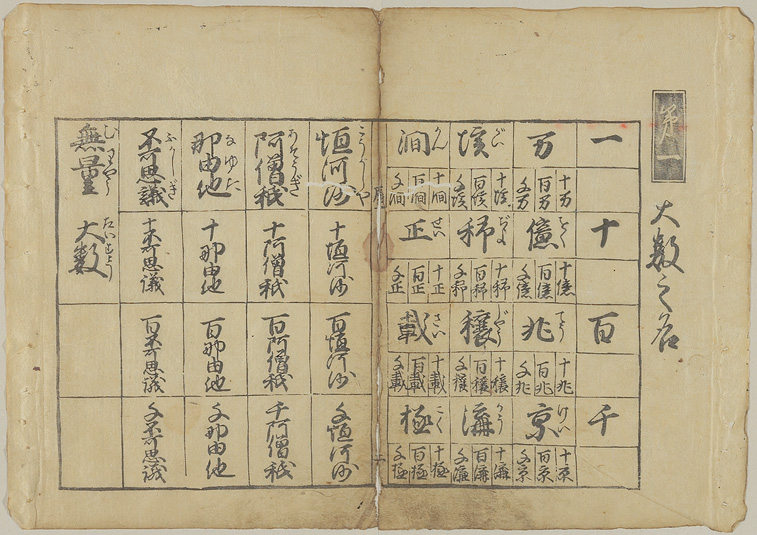 第一
大数之名
一
十
百
千
万
十万
百万
千万
億
をく
十億
百億
千億
兆
てう
十兆
百兆
千兆
京
けい
十京
百京
千京
垓
がい
十垓
百垓
千垓
秭
ぢよ
十秭
百秭
千秭
穣
十穣
百穣
千穣
溝
かう
十溝
百溝
千溝
澗
かん
十澗
百澗
千澗
正
せい
十正
百正
千正
載
さい
十載
百載
千載
極
ごく
十極
百極
千極
恒河沙
十恒河沙
百恒河沙
千恒河沙
阿僧祇
あそうぎ
十阿僧祇
百阿僧祇
千阿僧祇
那由他
なゆた
十那由他
百那由他
千那由他
不可思議
ふかしぎ
十不可思議
百不可思議
千不可思議
無量
むりやう
大数